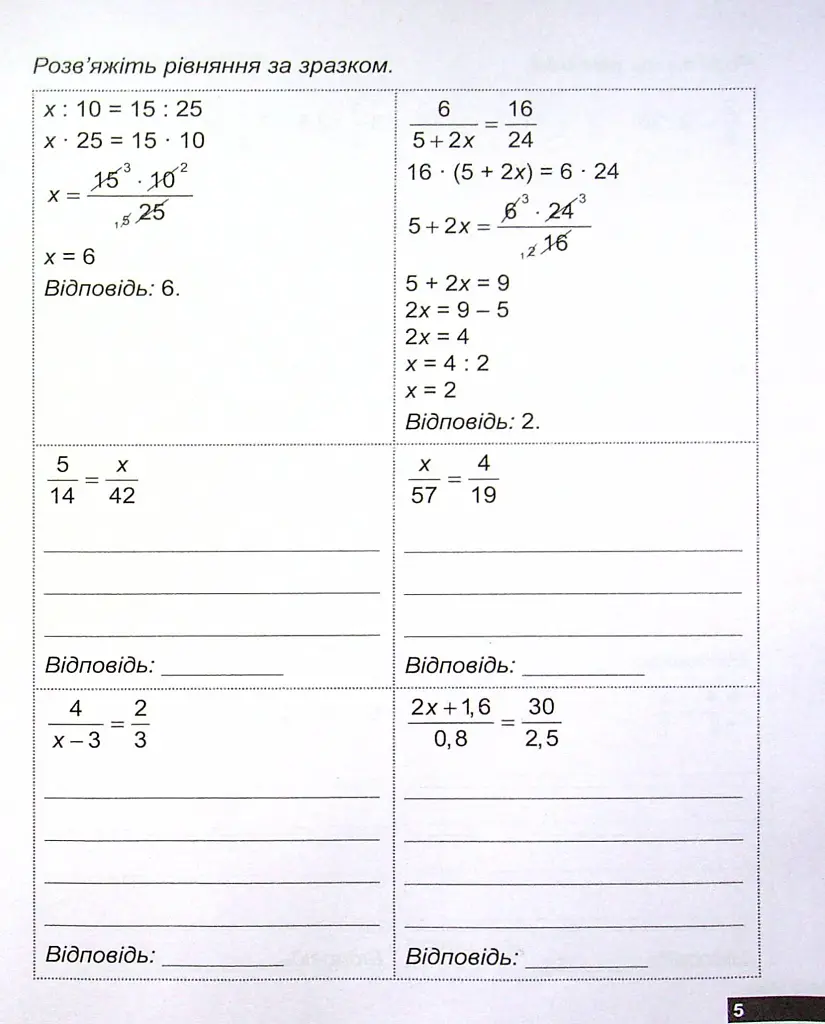 Розв'яжіть рівняння за зразком.
x : 10 = 15 : 25
x · 25 = 15 · 10
x = 15³ · 10² / ₁,₅ 25
x = 6
Відповідь: 6.
6 / 5 + 2x = 16 / 24
16 · (5 + 2x) = 6 · 24
5 + 2x = 6³ · 24³ / ₁,₂ 16
5 + 2x = 9
2x = 9 – 5
2x = 4
x = 4 : 2
x = 2
Відповідь: 2.
5 / 14 = x / 42
Відповідь:
x / 57 = 4 / 19
Відповідь:
4 / x – 3 = 2 / 3
Відповідь:
2x + 1,6 / 0,8 = 30 / 2,5
Відповідь:
5